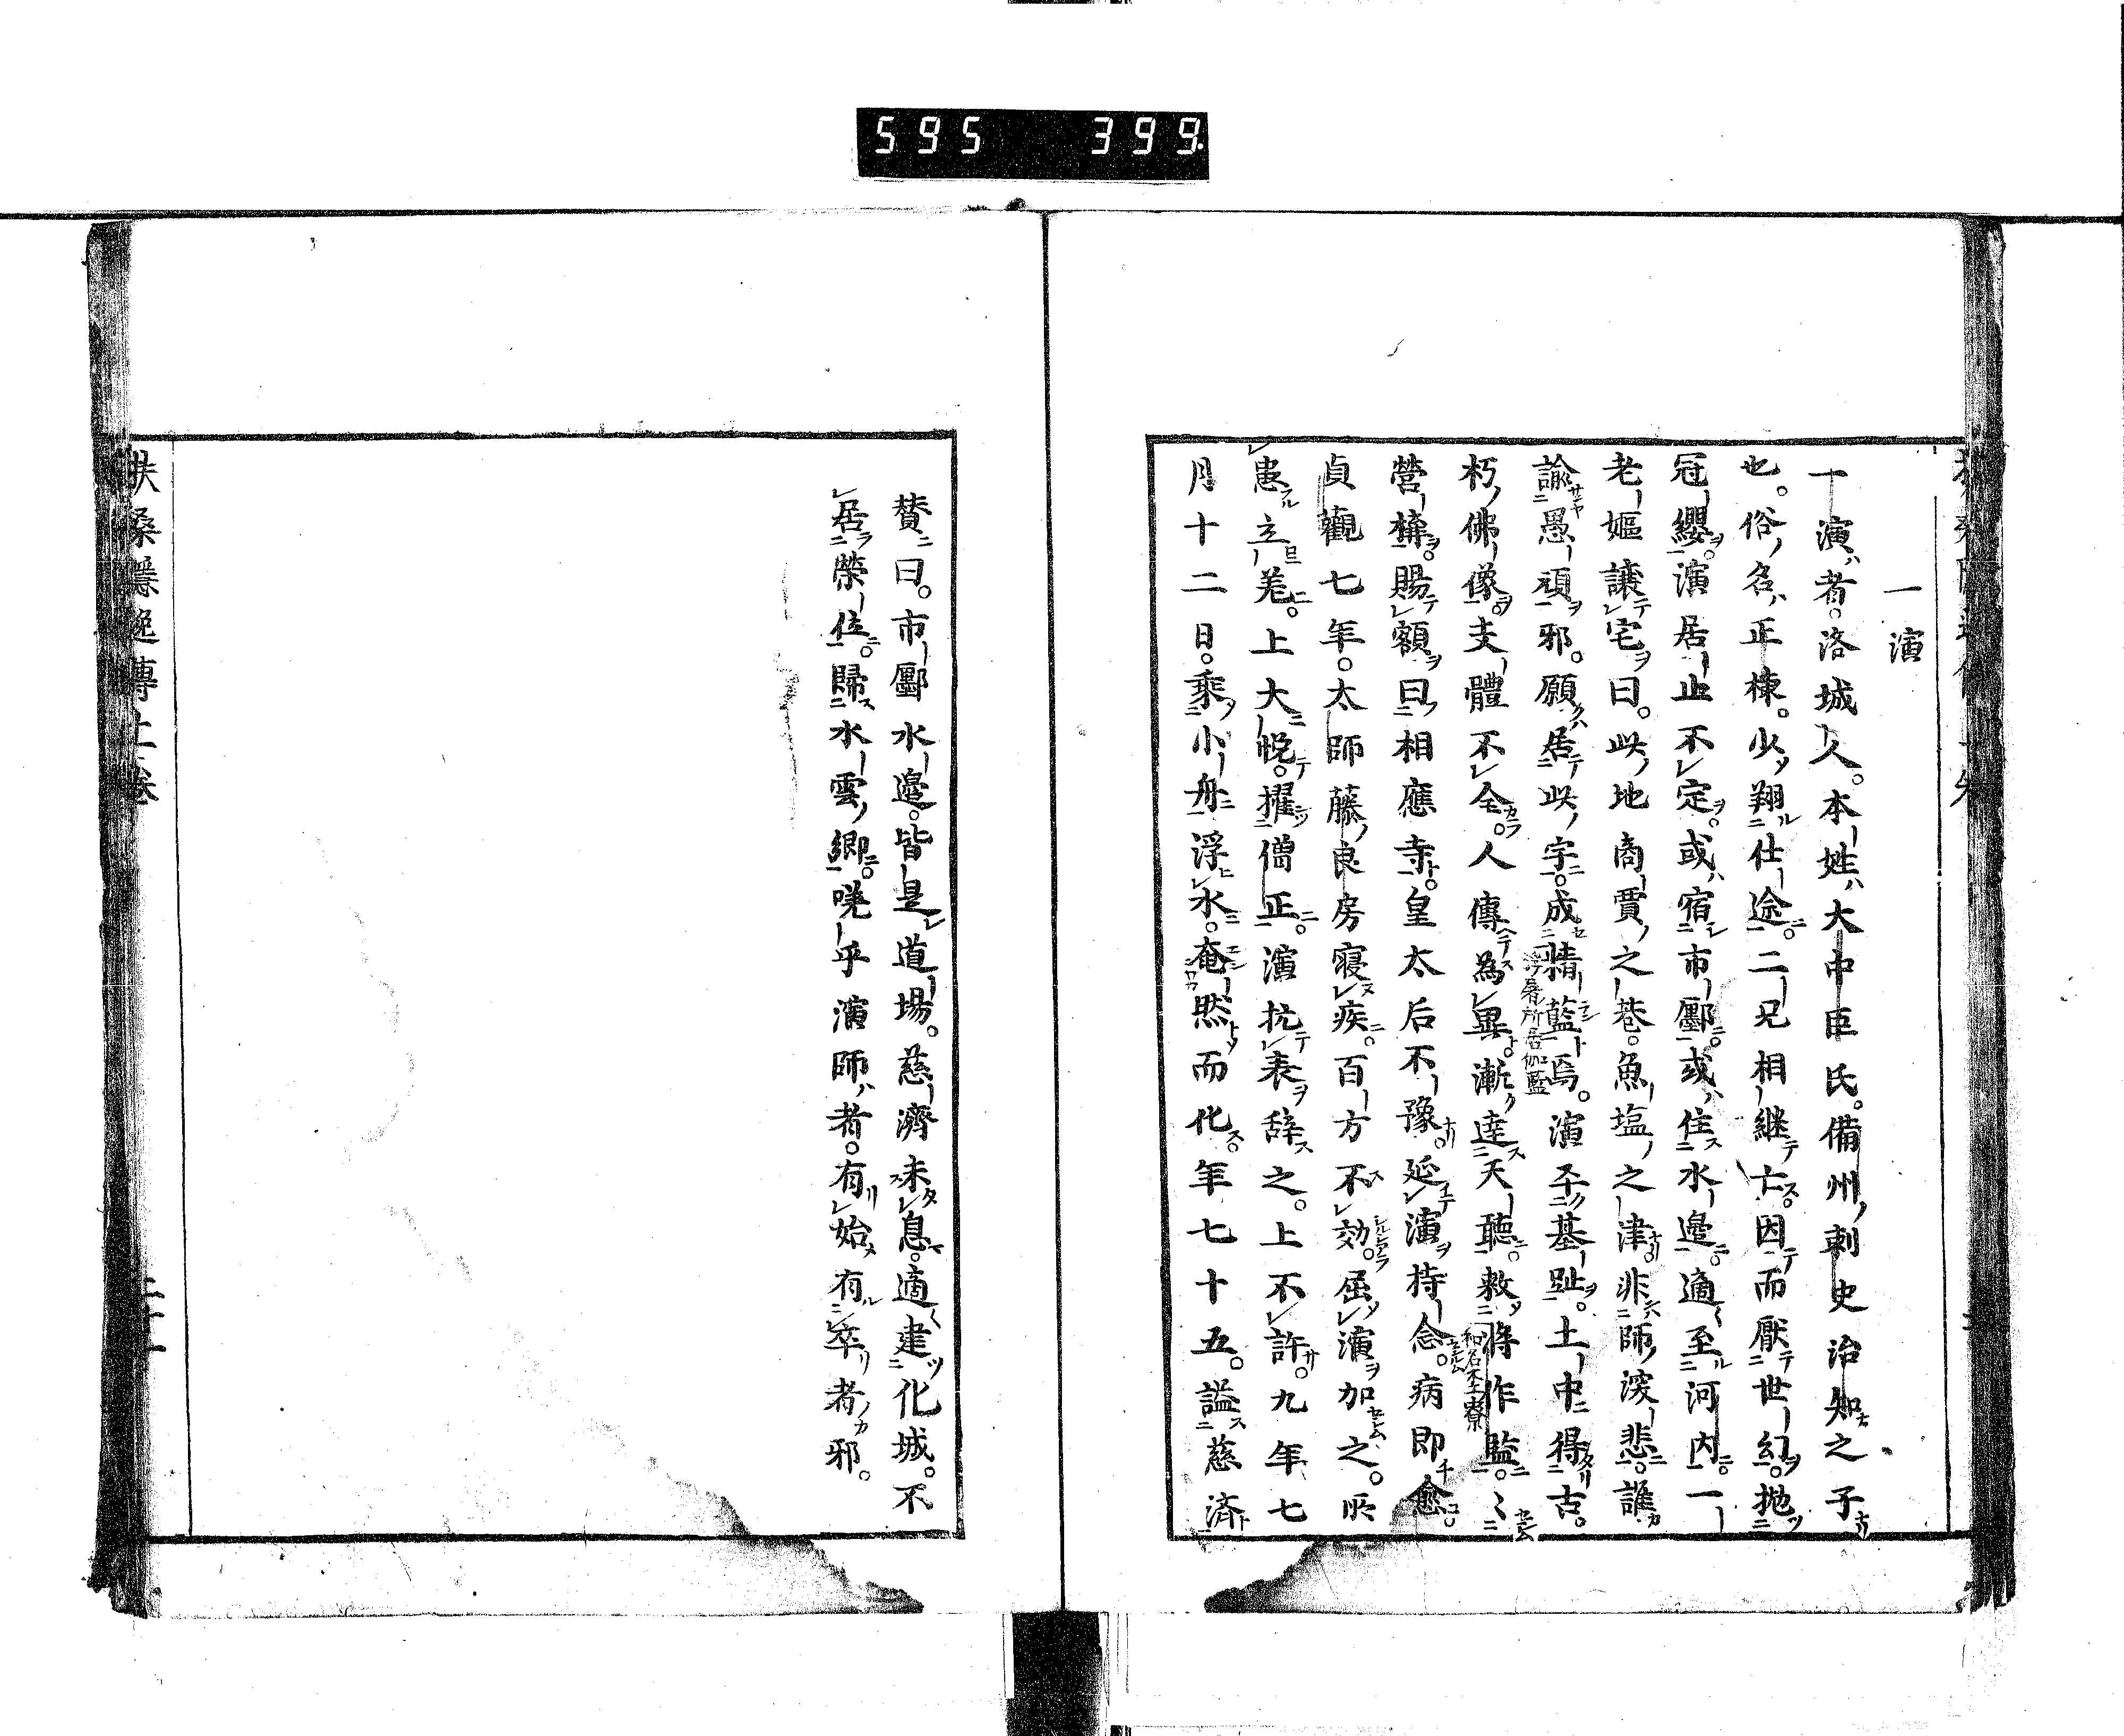 595 399
一演
一演者。洛城人。本姓大中臣氏。備州刺史治知之子
也。俗名正棟。少翔仕途。二兄相継亡。因而厭世幻。抛
冠纓。演居止不定。或宿市鄽。或住水邊。適至河内一
老嫗譲宅曰。此地商賈之巷。魚塩之津。非師深悲。誰
諭愚頑邪。願居此宇。成精藍焉。演平基趾。土中得古
浮屠所居伽藍
朽佛像。支體不全。人傳為異。漸達天聴。敕将作監。〻
和名木工寮
営構。賜額曰相應寺。皇太后不豫。延演持念。病即愈。
貞觀七年。太師藤良房寝疾。百方不効。屈演加之。所
患立差。上大悦。擢僧正。演抗表辞之。上不許。九年七
月十二日。乘小舟浮水。奄然而化。年七十五。謚慈済
賛曰。市鄽水邊。皆是道場。慈濟未息。適建化城。不
居榮位。歸水雲郷。咲乎演師者。有始有卒者邪。
扶桑隱逸傳上卷